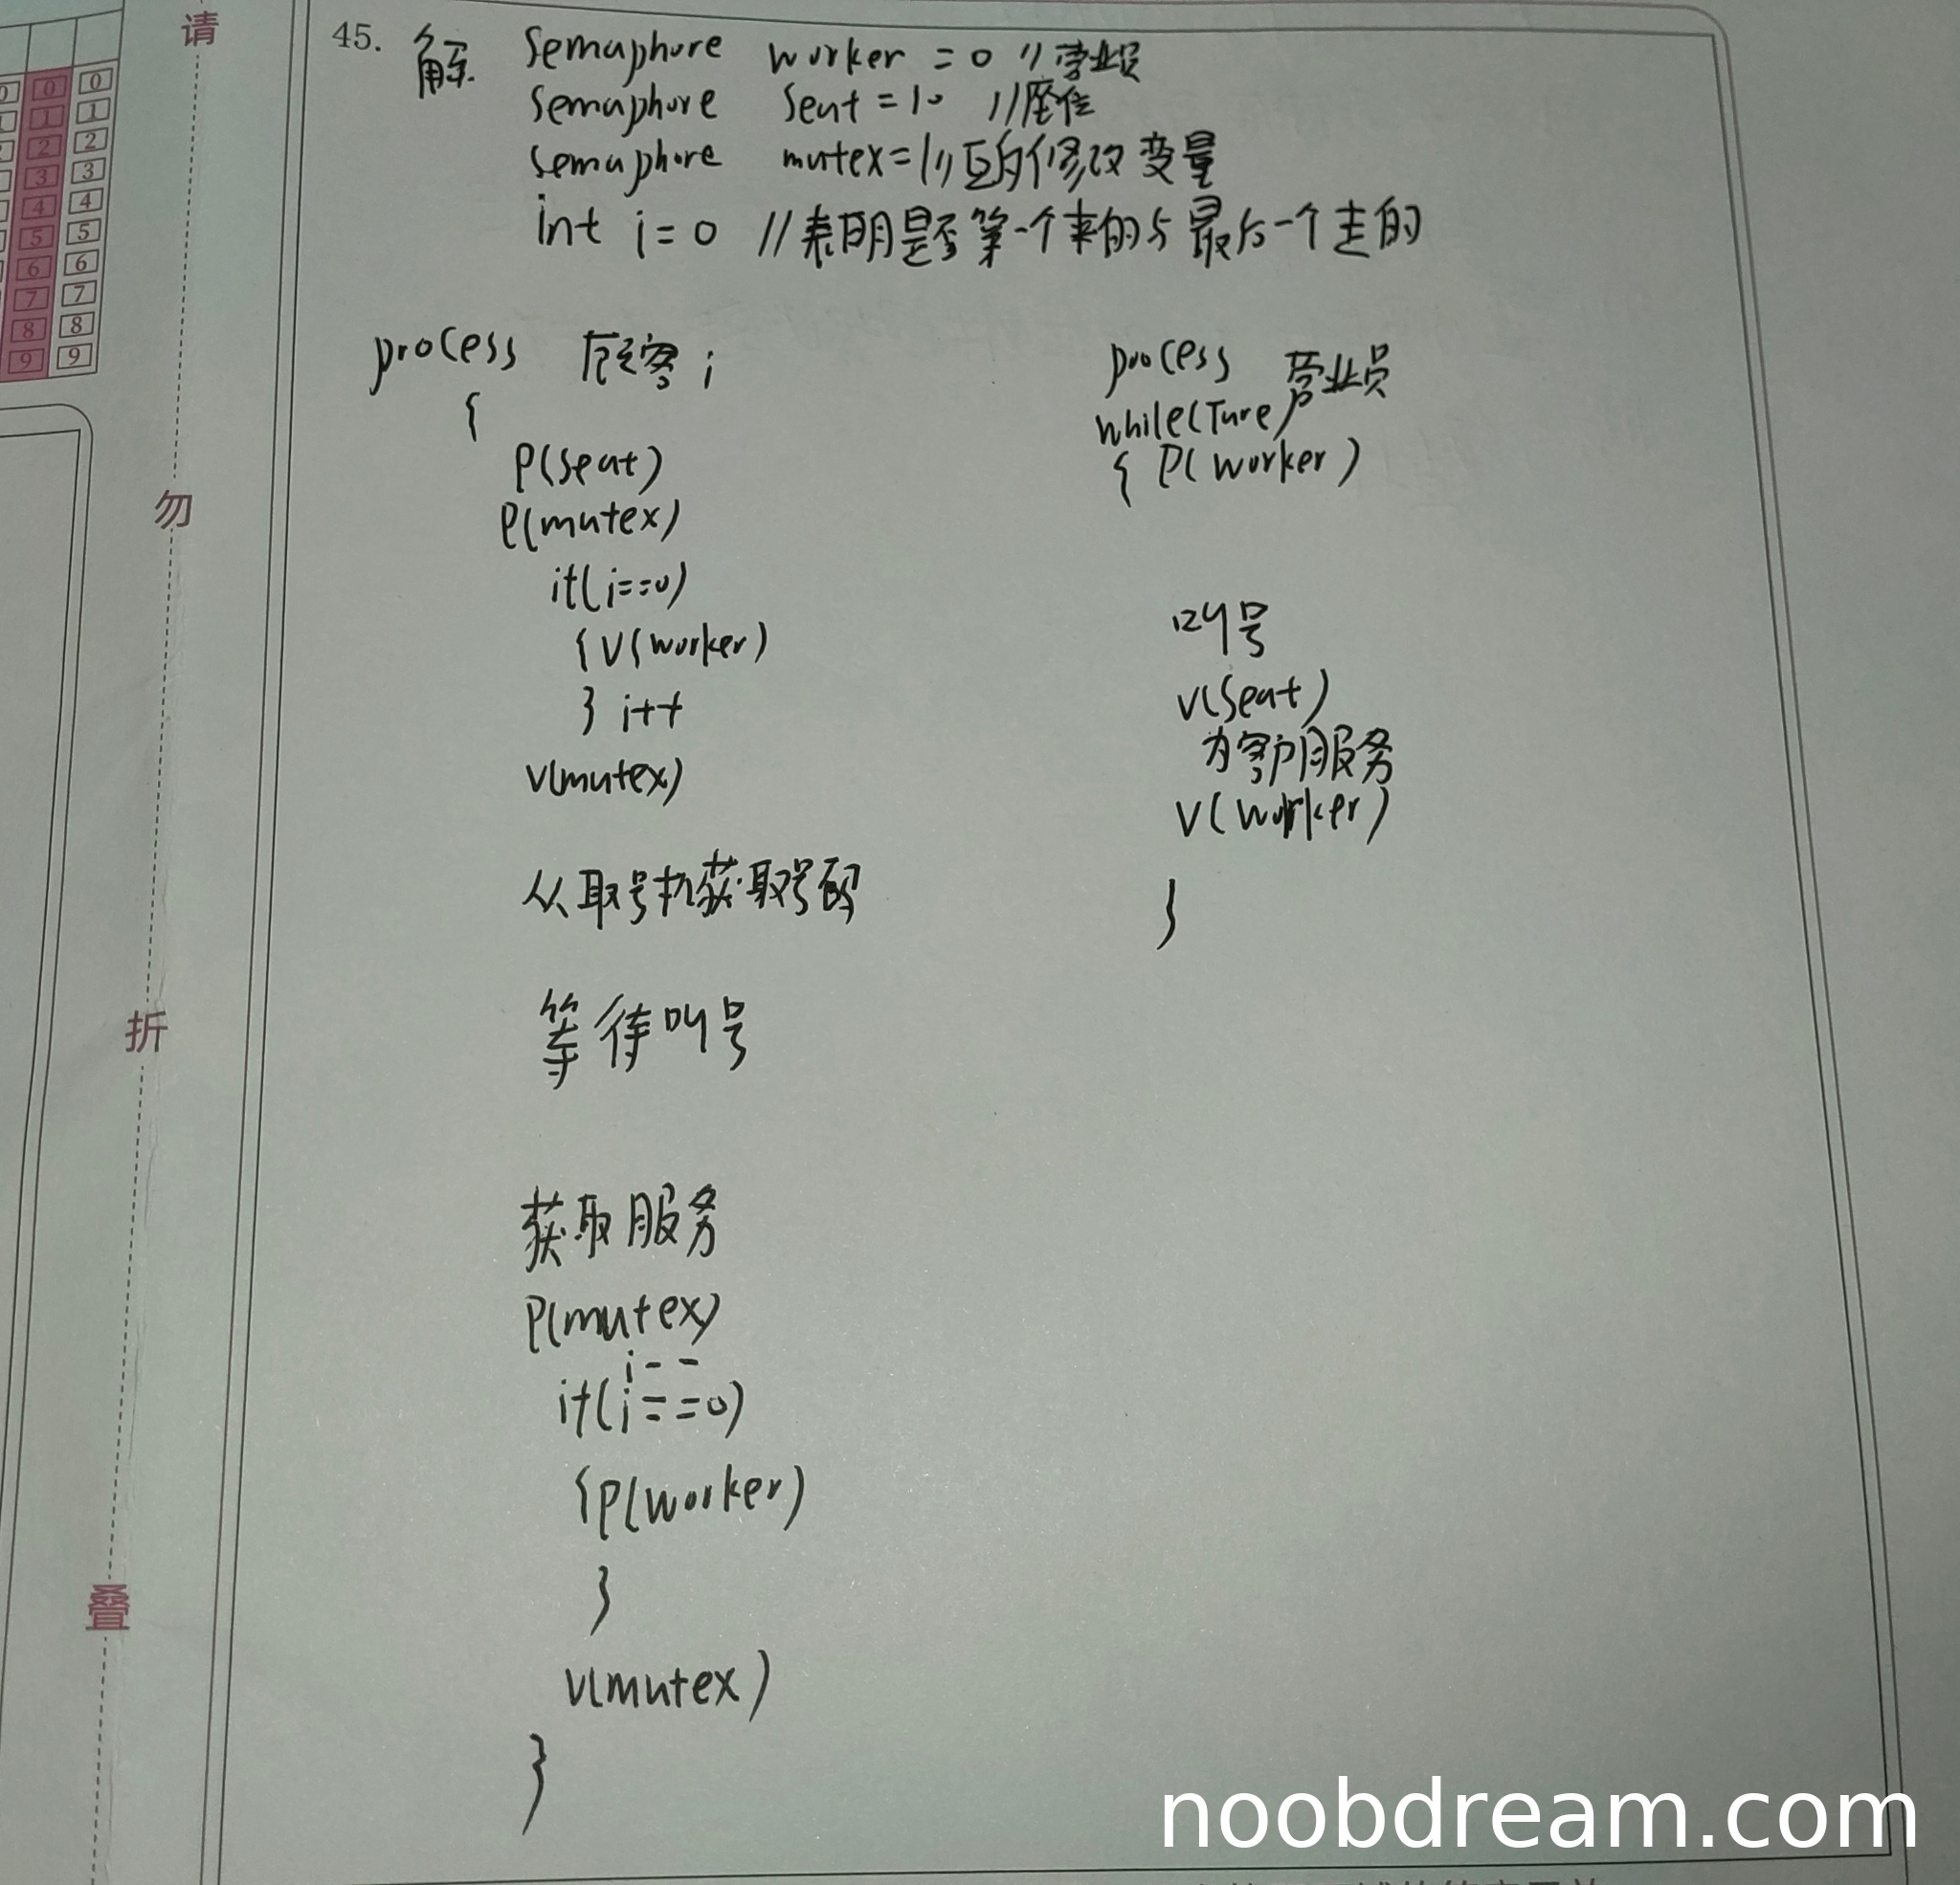 45. 解 Semaphore worker = 0 //营业员
Semaphore Seat = 10 //座位
Semaphore mutex=1//互斥修改变量
int i = 0 //表明是否第一个来的与最后一个走的
process 顾客 i
{
P(Seat)
P(mutex)
if(i==0)
{V(worker)
} i++
V(mutex)
从取号机获取号码
等待叫号
获取服务
P(mutex)
i--
if(i==0)
{P(worker)
}
V(mutex)
}
process 营业员
while(Ture)
{ P(worker)
叫号
V(Seat)
为客户服务
V(worker)
}
请
勿
折
叠
0 0
1 1
2 2
3 3
4 4
5 5
6 6
7 7
8 8
9 9
noobdream.com